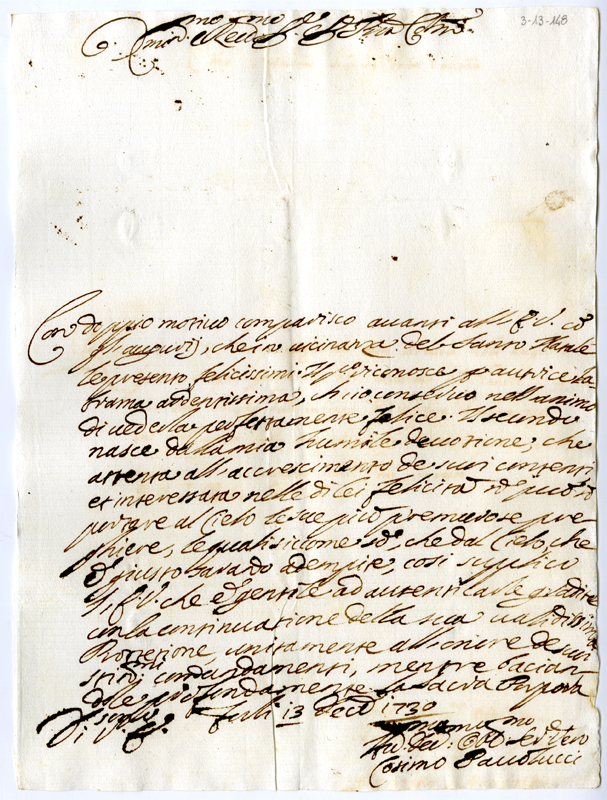 3-13-148
Em.mo e Rev.mo Sig.r
Con doppio motivo comparisco avanti all' E. V. cō
gl'augurij, che in vicinanza del Santo Natale
le presento felicissimi. Il p.o riconosce p autrice la
brama ardentissima, ch'io conservo nell'animo
di vederla perfettamente felice. Il secundo
nasce dalla mia humile devotione, che
attenta all'accrescimento de suoi contenti
et interessata nelle di lei felicità nō può nō
porgere al Cielo le sue più premurose pre
ghiere, le quali siccome sō, che dal Cielo, che
è giusto sarano adempite, così supplico
V. E. che è gentile ad autenticarle gradite
con la continuatione della sua validissima
Protetione, unitamente all'onore de suoi
stim.mi comandamenti, mentre bacian
dole profundamente la Sacra Porpora
Di V. E.
Forlì 13 Dec. 1730
Cosimo Paulucci